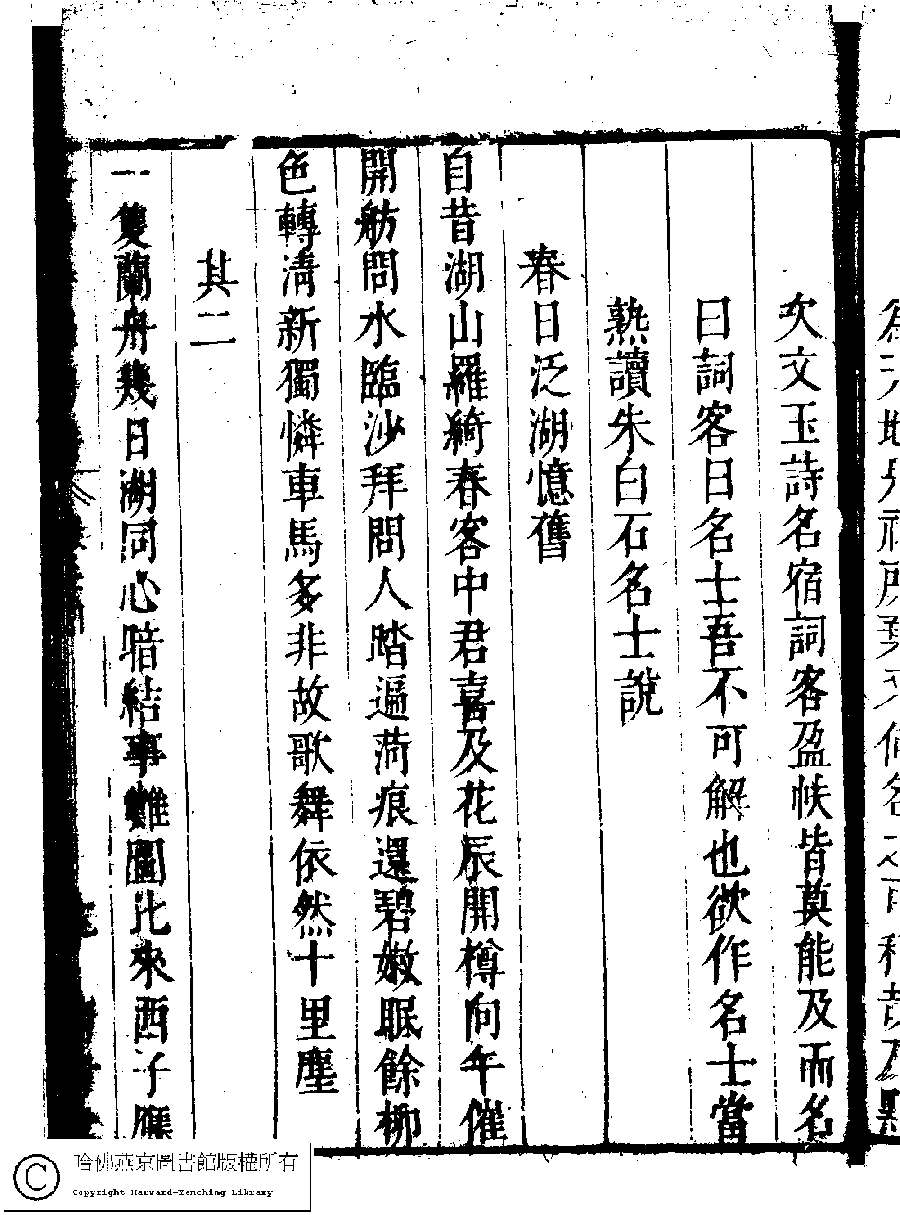 次文玉詩名宿詞客盈帙皆莫能及而名
曰詞客曰名士吾不可解也欲作名士當
熟讀朱白石名士說
春日泛湖憶舊
自昔湖山羅綺春客中君喜及花辰開樽向午催
開舫問水臨沙拜問人踏遍荷痕還碧嫩眠餘柳
色轉清新獨憐車馬多非故歌舞依然十里塵
其二
一雙蘭舟幾日湖同心暗結事難圖比來西子應
哈佛燕京圖書館版權所有
Copyright Harvard-Yenching Library